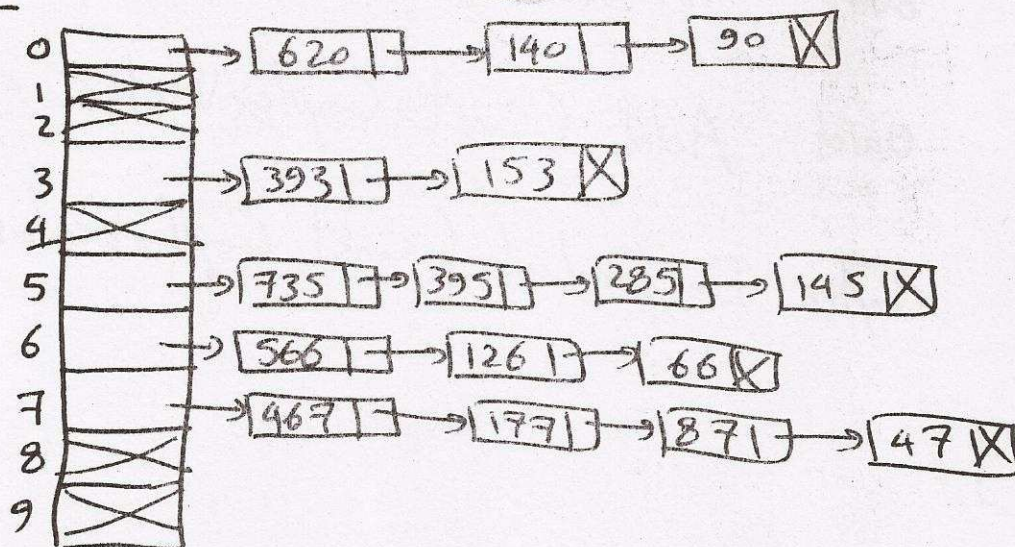 0 620 140 90
1
2
3 393 153
4
5 735 395 285 145
6 566 126 66
7 467 177 87 47
8
9